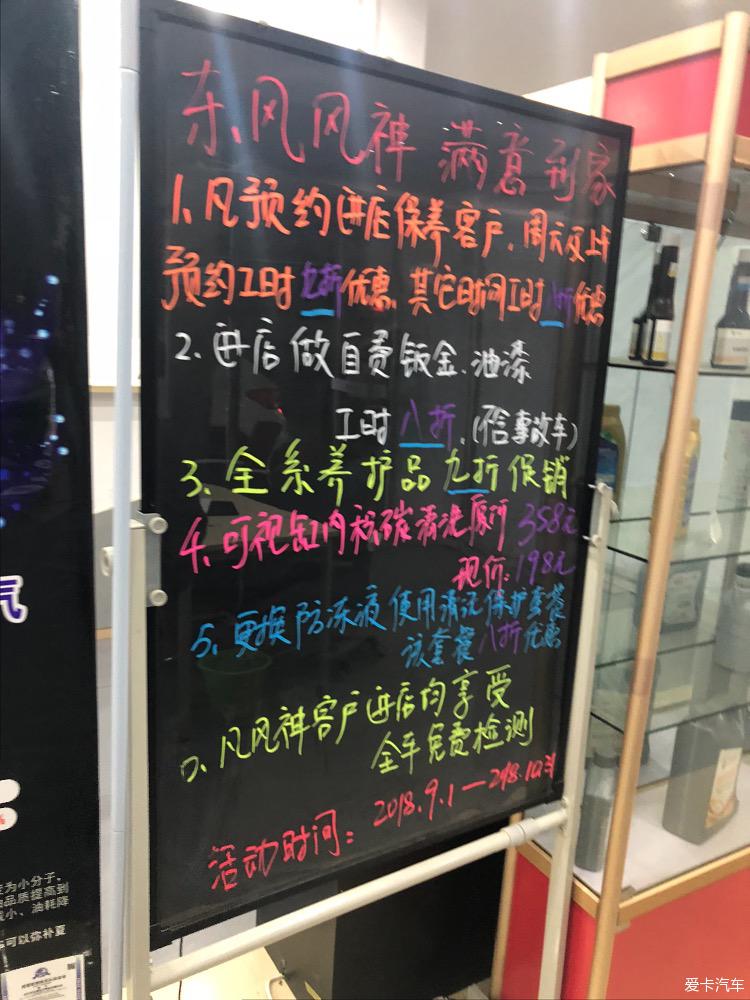 东风风神 满意到家
1、凡预约进店保养客户,周六及上午
预约工时九折优惠,其它时间工时八折优惠
2、进店做自费钣金、油漆
工时八折,(信事改车)
3、全系养护品九折促销
4、可视缸内积碳清洗原价 358元
现价:198元
5、更换防冻液使用清洗保护套餐
该套餐八折优惠
凡风神客户进店均享受
全车免费检测
活动时间:2018.9.1—
气
变为小分子,
油品质提高到
减小、油耗降
可以弥补夏
爱卡汽车